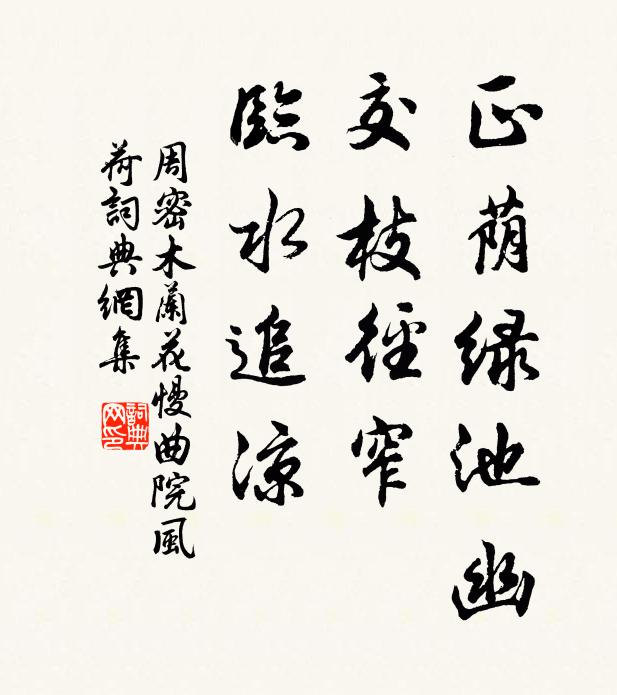 正荫绿池幽
交枝徑窄
臨水追凉
周密木蘭花慢曲院風
荷詞典網集
詞典网印